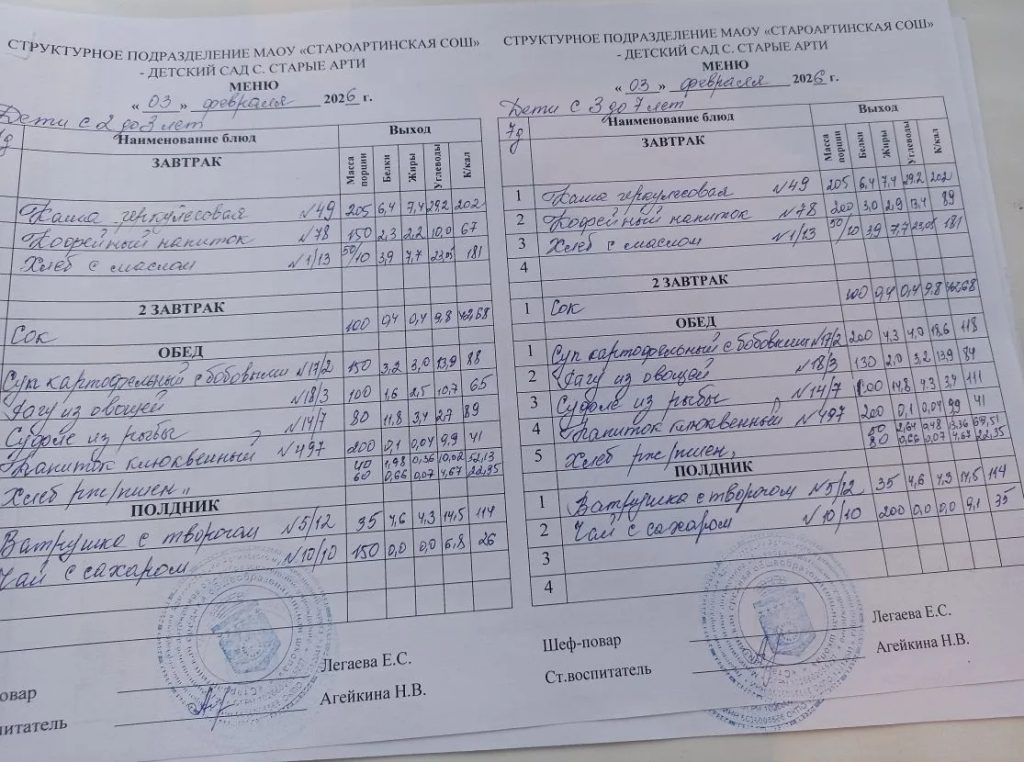 СТРУКТУРНОЕ ПОДРАЗДЕЛЕНИЕ МАОУ «СТАРОАРТИНСКАЯ СОШ»
- ДЕТСКИЙ САД С. СТАРЫЕ АРТИ
МЕНЮ
« 03 » февраля 2026 г.
Дети с 2 до 3 лет
Наименование блюд Выход
ЗАВТРАК Масса порции Белки Жиры Углеводы К/кал
Каша геркулесовая №49 205 6,4 7,4 29,2 202
Кофейный напиток №78 150 2,3 2,2 10,0 67
Хлеб с маслом №1/13 50/10 3,9 7,7 23,05 181
2 ЗАВТРАК
Сок 100 0,4 0,4 9,8 42,68
ОБЕД
Суп картофельный с бобовыми №17/2 150 3,2 3,0 13,9 88
Рагу из овощей №18/3 100 1,6 2,5 10,7 65
Суфле из рыбы №14/7 80 11,8 3,4 2,7 89
Напиток клюквенный №497 200 0,1 0,04 9,9 41
40 1,98 0,36 10,02 52,13
Хлеб рж/пшен 60 0,66 0,07 4,67 22,35
ПОЛДНИК
Ватрушка с творогом №5/12 35 4,6 4,3 14,5 114
Чай с сахаром №10/10 150 0,0 0,0 6,8 26
Легаева Е.С.
овар
Агейкина Н.В.
питатель
СТРУКТУРНОЕ ПОДРАЗДЕЛЕНИЕ МАОУ «СТАРОАРТИНСКАЯ СОШ»
- ДЕТСКИЙ САД С. СТАРЫЕ АРТИ
МЕНЮ
« 03 » февраля 2026 г.
Дети с 3 до 7 лет
7д Наименование блюд Выход
ЗАВТРАК Масса порции Белки Жиры Углеводы К/кал
1 Каша геркулесовая №49 205 6,4 7,4 29,2 202
2 Кофейный напиток №78 200 3,0 2,9 13,4 89
3 Хлеб с маслом №1/13 50/10 3,9 7,7 23,05 181
4
2 ЗАВТРАК
1 Сок 100 0,4 0,4 9,8 42,68
ОБЕД
1 Суп картофельный с бобовыми №17/2 200 4,3 4,0 18,6 118
2 Рагу из овощей №18/3 130 2,0 3,2 13,9 84
3 Суфле из рыбы №14/7 100 14,8 4,3 3,4 111
4 Напиток клюквенный №497 200 0,1 0,04 9,9 41
50 2,64 0,48 13,36 69,51
5 Хлеб рж/пшен 80 0,66 0,07 4,67 22,35
ПОЛДНИК
1 Ватрушка с творогом №5/12 35 4,6 4,3 14,5 114
2 Чай с сахаром №10/10 200 0,0 0,0 9,1 35
3
4
Шеф-повар Легаева Е.С.
Ст.воспитатель Агейкина Н.В.